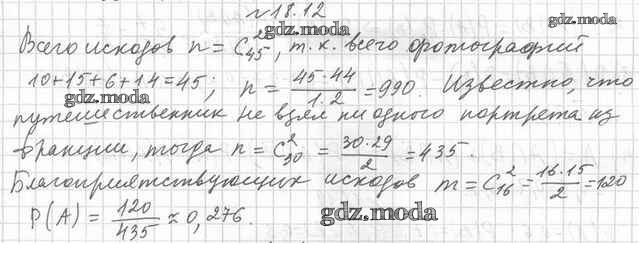 №18.12
gdz.moda
Всего исходов n = C²₄₅, т.к. всего фотографий
gdz.moda
10+15+6+14=45; n = 45·44/1·2 = 990. Известно, что
gdz.moda
путешественник не взял ни одного портрета из
Франции, тогда n = C²₃₀ = 30·29/2 = 435.
gdz.moda
Благоприятствующих исходов m = C²₁₆ = 16·15/2 = 120
P(A) = 120/435 ≈ 0,276.
gdz.moda